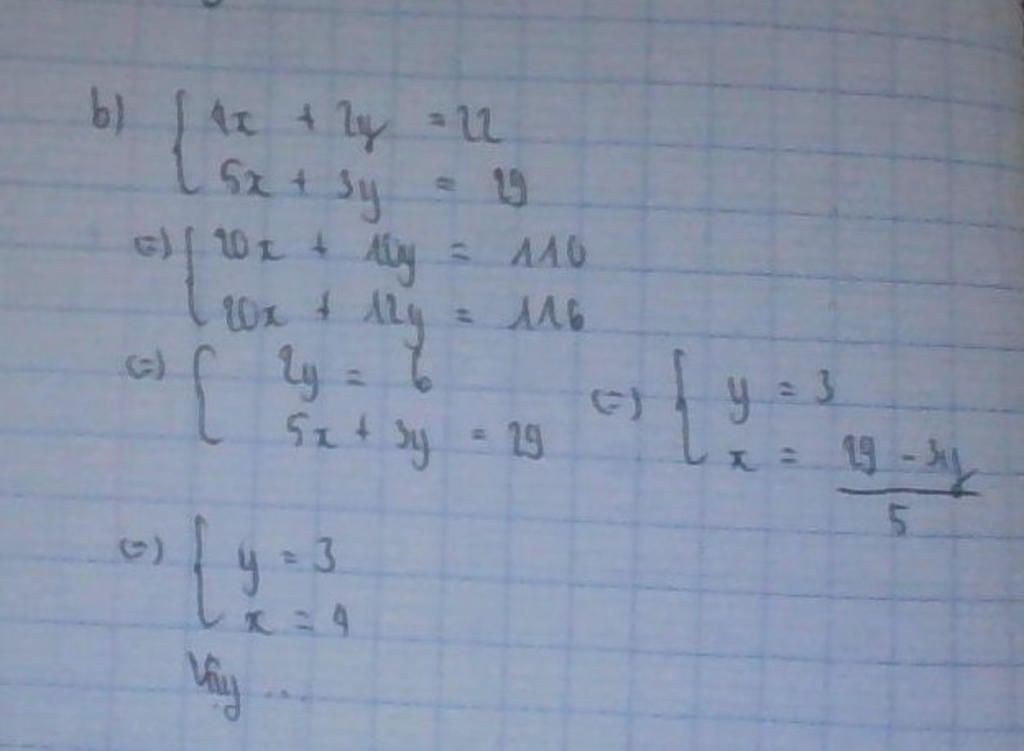 b) { 4x + 2y = 22
5x + 3y = 29
<=> { 20x + 10y = 110
20x + 12y = 116
<=> { 2y = 6
5x + 3y = 29
<=> { y = 3
x = (29 - 3y)/5
<=> { y = 3
x = 4
Vậy ...